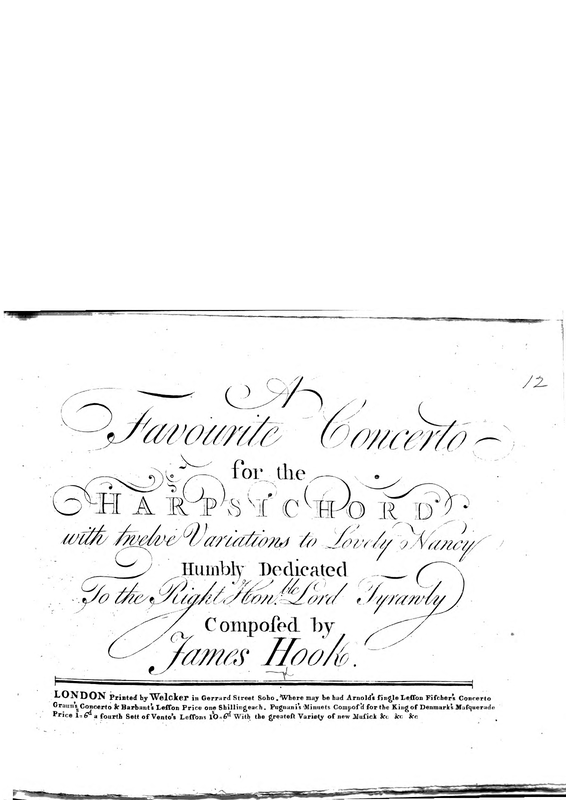 12
A
Favourite Concerto
for the
HARPSICHORD
with twelve Variations to Lovely Nancy
Humbly Dedicated
To the Right Hon.ble Lord Tyrawly
Compoſed by
James Hook.
LONDON Printed by Welcker in Gerrard Street Soho. Where may be had Arnold's ſingle Leſſon Fiſcher's Concerto
Graun's Concerto & Barbant's Leſſon Price one Shilling each. Pugnani's Minuets Compoſ'd for the King of Denmark's Maſquerade
Price 1s.6d a fourth Sett of Vento's Leſſons 10.6d With the greateſt Variety of new Muſick &c &c &c